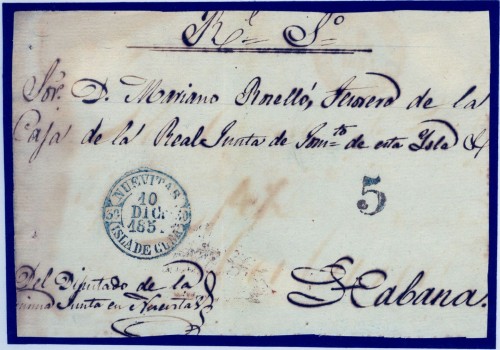 Rl. So.
Sor. D. Mariano Roselló, Tesorero de la
Caja de la Real Junta de Fomto. de esta Isla &
NUEVITAS
10
DIC.
185
ISLA DE CUBA
5
Del Diputado de la
misma Junta en Nuevitas
Habana.